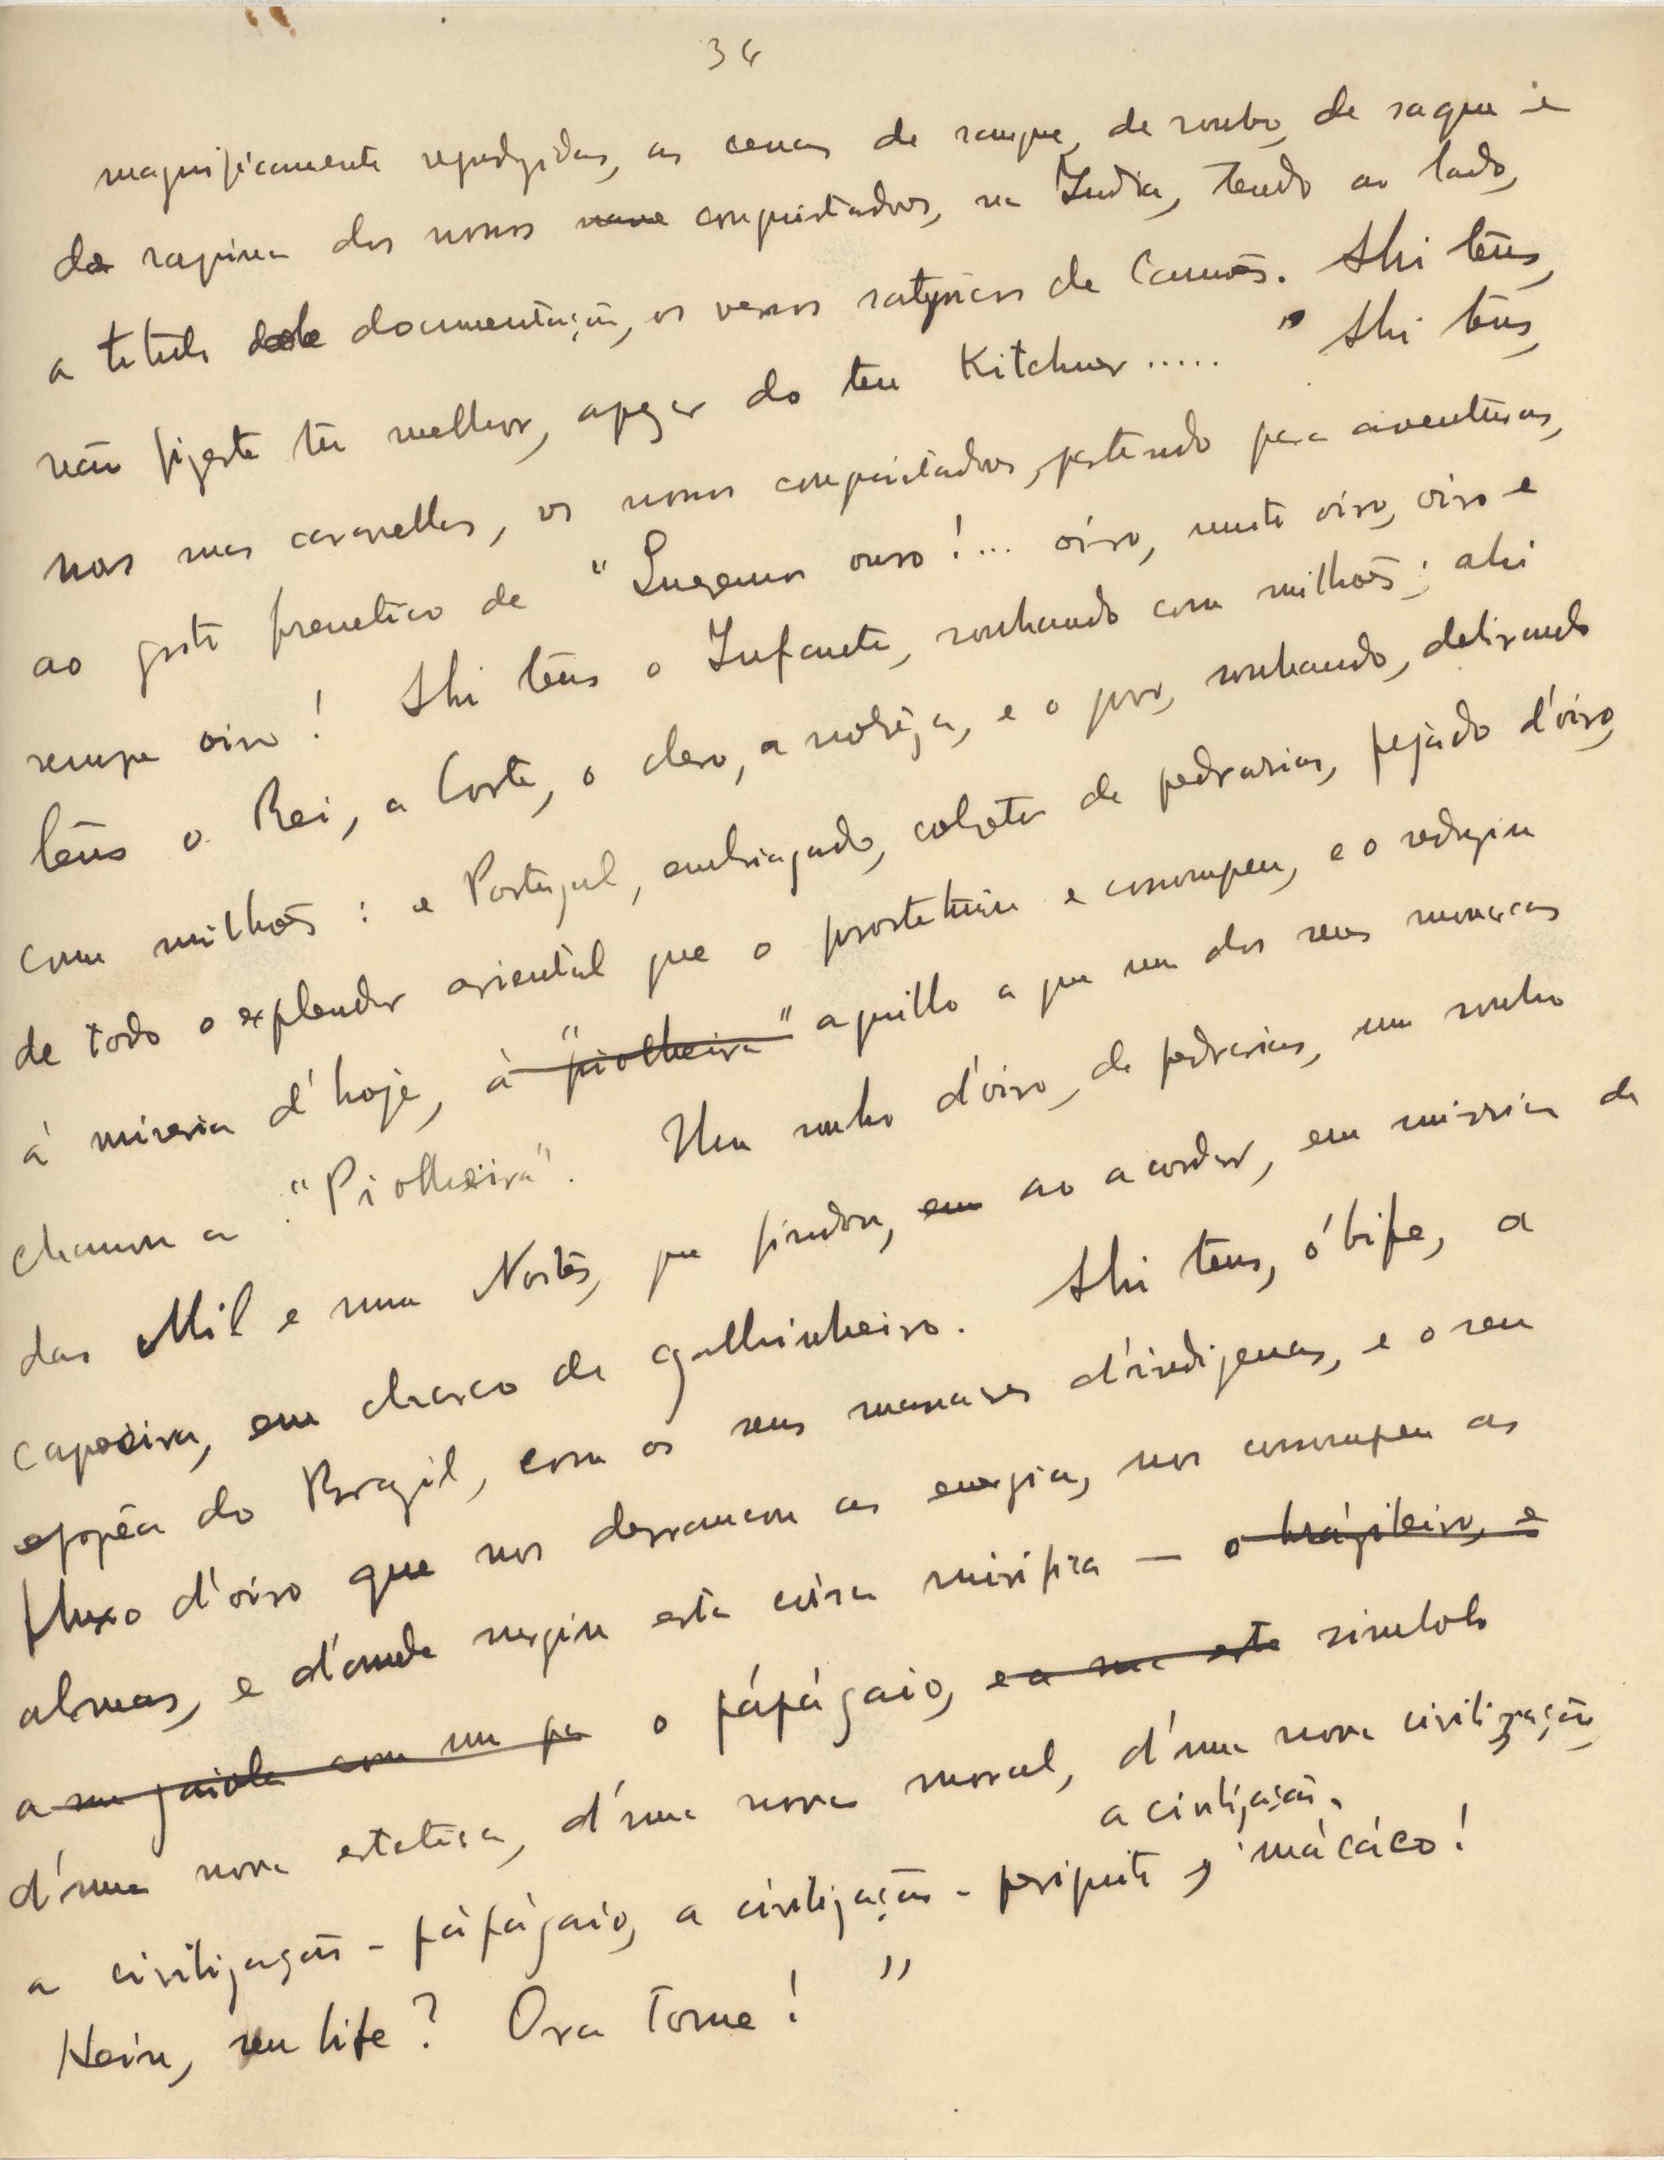 34
magnificamente reproduzidas, as cenas de sangue, de roubo, de saque e
de rapina dos nossos conquistadores, na India, tendo ao lado,
a titulo de documentação, os versos satyricos de Camões. Ahi têns,
não fizeste tu melhor, apezar do teu Kitchner ..... " Ahi têns,
nas suas caravellas, os nossos conquistadores, partindo para aventuras,
ao grito frenetico de " ouro !... oiro, muito oiro, oiro e
sempre oiro ! Ahi têns o Infante, sonhando com milhões ; ahi
têns o Rei, a Corte, o clero, a nobreza, e o povo, sonhando, delirando
com milhões : e Portugal, embriagado, coberto de pedrarias, pejádo d'oiro,
de todo o explendor oriental que o prostituiu e corrompeu, e o reduziu
á miseria d'hoje, à "piolheira" aquillo a que um dos seus monarcas
chamou a "Piolheira". Um sonho d'oiro, de pedrarias, um sonho
das Mil e uma Noites, que findou, em ao acordar, em miseria de
capoeira, em charco de gallinheiro. Ahi tens, ó bife, a
epopêa do Brazil, com os seus massacres d'indigenas, e o seu
fluxo d'oiro que nos derrancou as energias, nos corrompeu as
almas, e d'onde surgiu esta coisa mirifica — o brázileiro, e
a sua gaiola com um pa o pápágaio, e a sua esta simbolo
d'uma nova estetica, d'uma nova moral, d'uma nova civilização,
a civilização -
a civilização - pápágaio, a civilização - periquito, mácáco!
Hein, seu bife ? Ora tome ! "